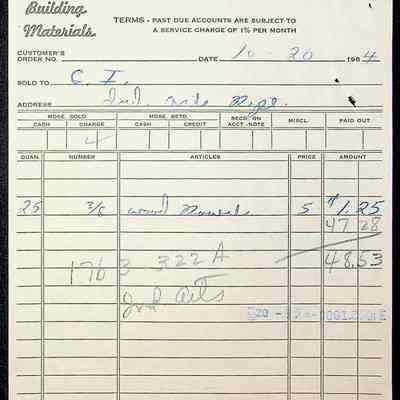 Building
Materials.
TERMS - PAST DUE ACCOUNTS ARE SUBJECT TO
A SERVICE CHARGE OF 1% PER MONTH
CUSTOMER'S
ORDER NO. DATE 10-20 1964
SOLD TO C. I.
ADDRESS Ind. Arts Dept.
MDSE. SOLD MDSE. RETD. REC'D. ON ACCT.-NOTE MISCL. PAID OUT
CASH CHARGE CASH CREDIT
4
QUAN. NUMBER ARTICLES PRICE AMOUNT
25 3/8 wood Dowels 5 $1.25
47 28
48.53
176 322 A
Ind Arts